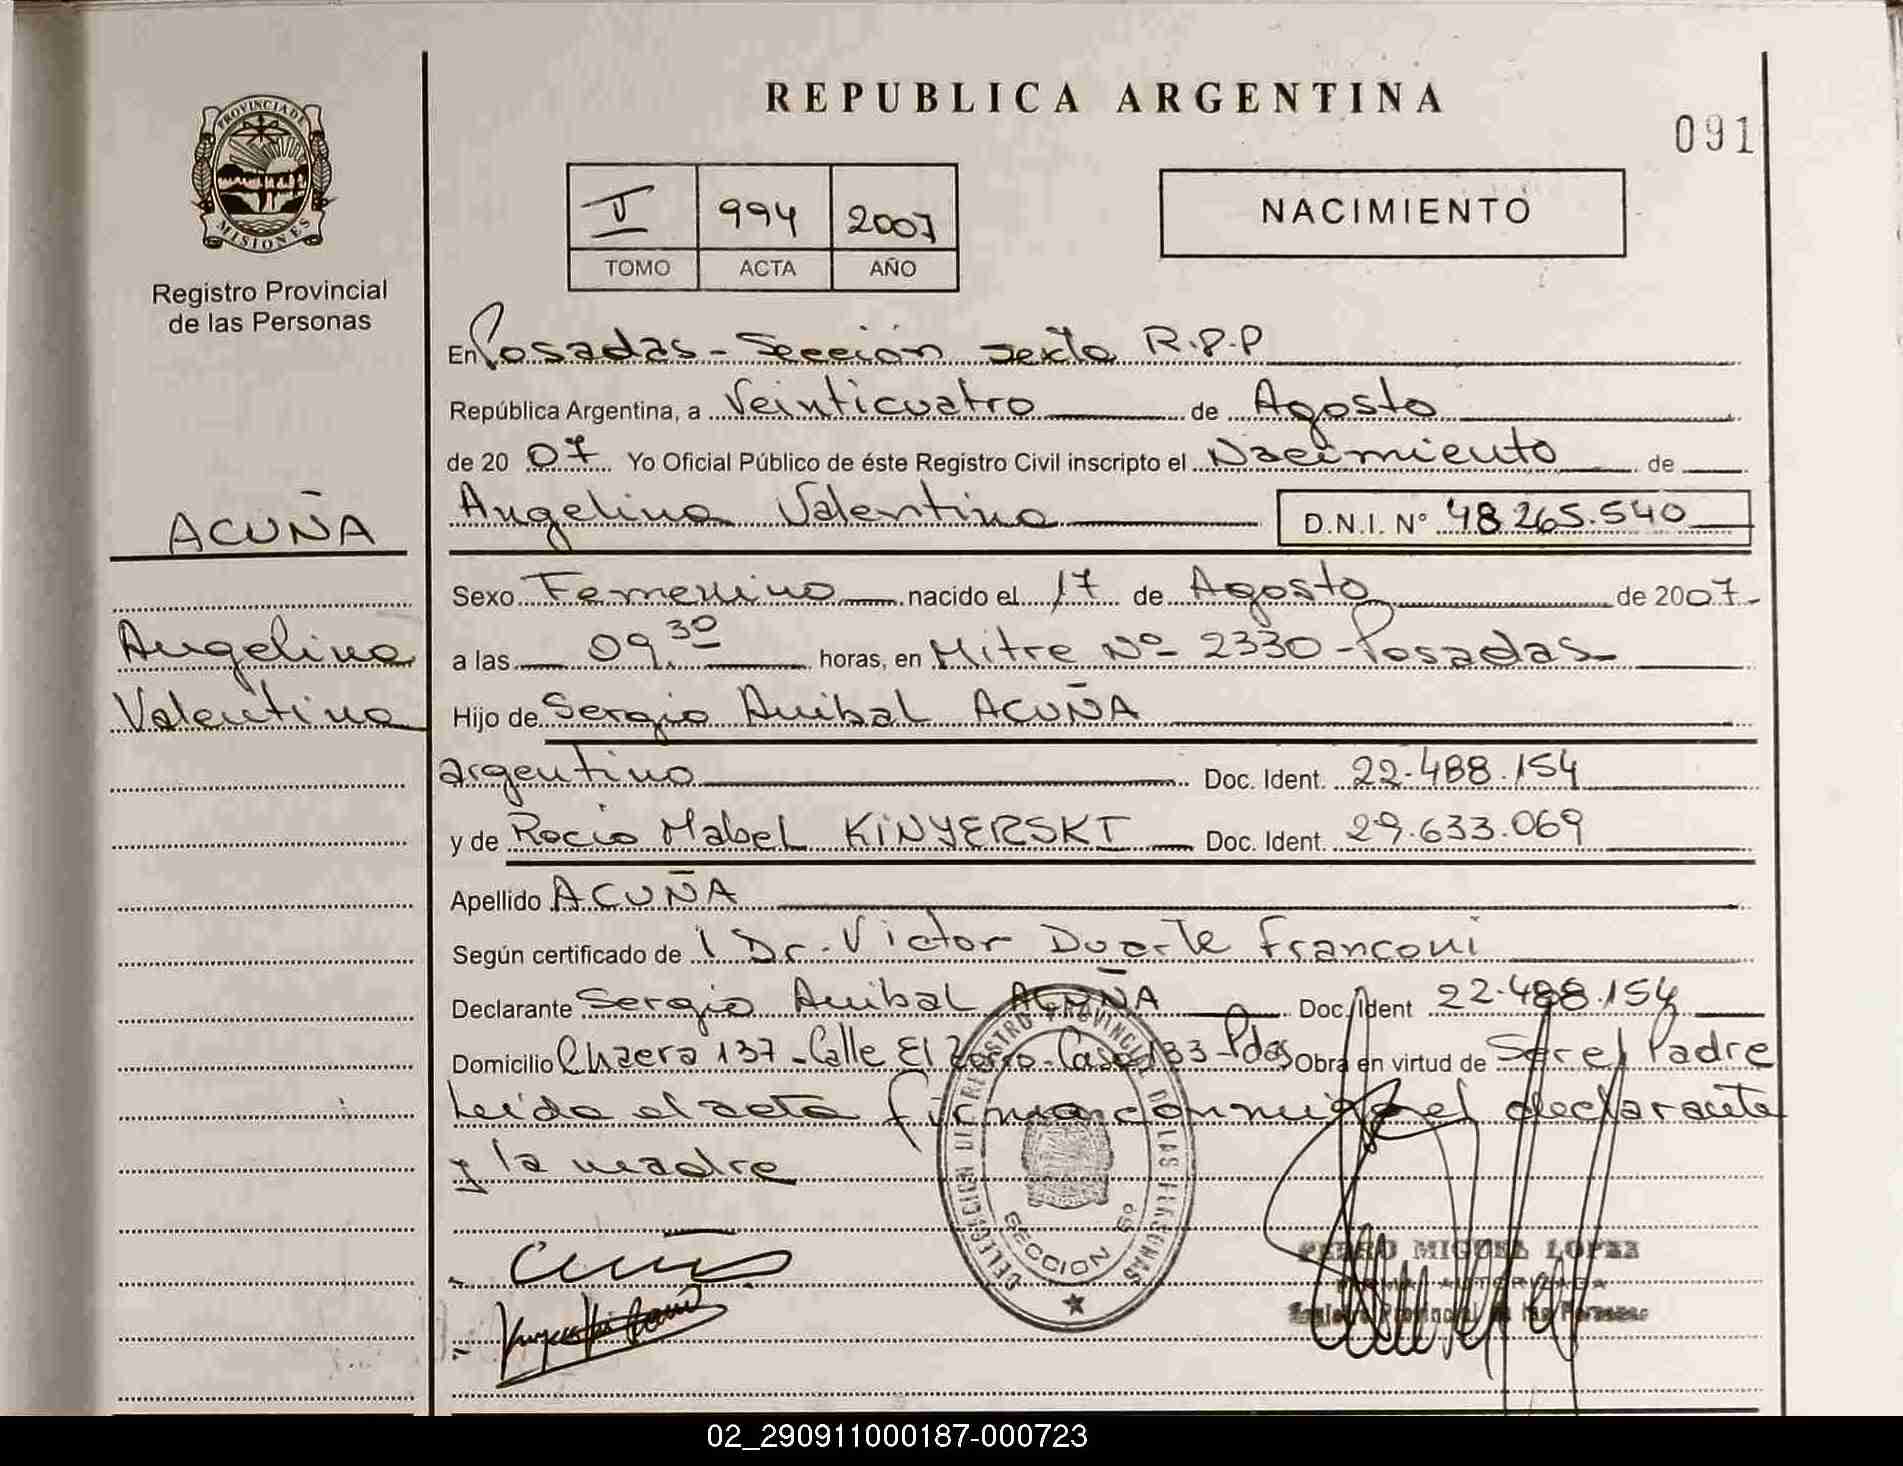 REPUBLICA ARGENTINA
091
PROVINCIA DE
MISIONES
Registro Provincial
de las Personas
V 994 2007
TOMO ACTA AÑO
NACIMIENTO
En Posadas - Sección sexta R.P.P
República Argentina, a Veinticuatro de Agosto
de 20 07 Yo Oficial Público de éste Registro Civil inscripto el Nacimiento de
Angelina Valentina D.N.I. N° 48.265.540
ACUÑA
Angelina
Valentina
Sexo Femenino nacido el 17 de Agosto de 2007
a las 09.30 horas, en Mitre Nº 2330 - Posadas
Hijo de Sergio Anibal ACUÑA
argentino Doc. Ident. 22.488.154
y de Rocio Mabel KINYERSKI Doc. Ident. 29.633.069
Apellido ACUÑA
Según certificado de Dr. Victor Duarte Franconi
Declarante Sergio Anibal ACUÑA Doc. Ident 22.488.154
Domicilio Chacra 137 - Calle El Zorro - Casa 133 - Pdas Obra en virtud de Ser el Padre
Leida el acta firman conmigo el declarante
y la madre
DELEGACION DEL REGISTRO PROVINCIAL DE LAS PERSONAS
SECCION 6º
PEDRO MIGUEL LOPEZ
FIRMA AUTORIZADA
Registro Provincial de las Personas
02_290911000187-000723